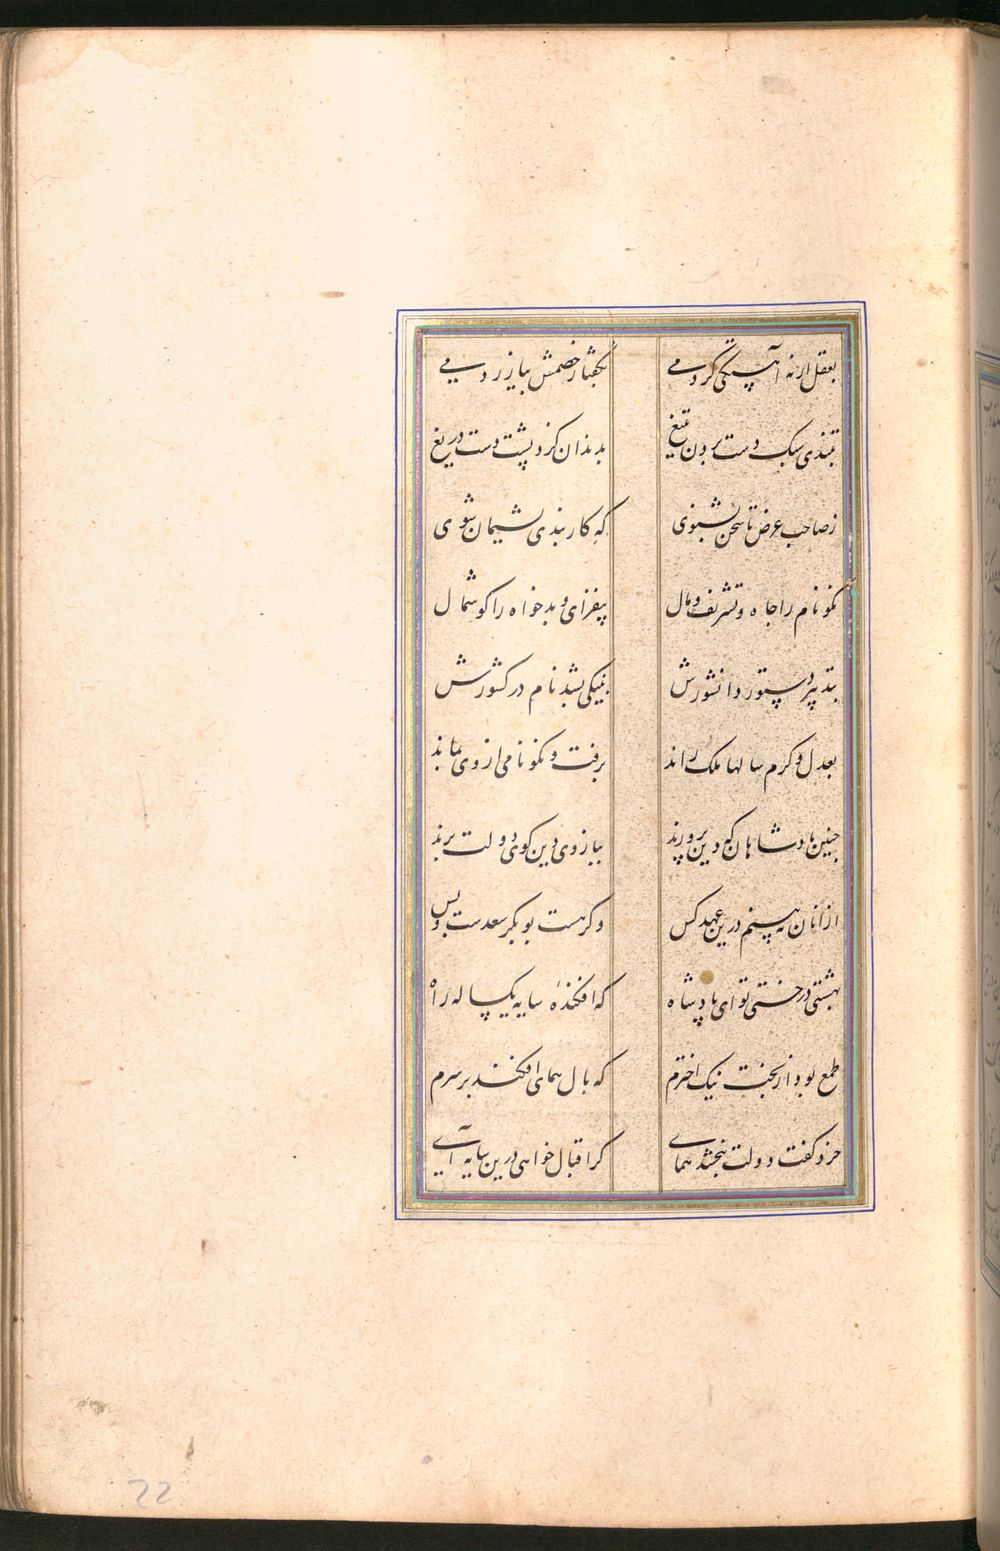 بعقل ار نه آهستگی کردمی
بگفتار خصمش بیازردمی
بتندی سبک دست بردن بتیغ
بدندان گزد پشت دست دریغ
ز صاحب غرض تا سخن نشنوی
که کار بندی پشیمان شوی
نکونام را جاه و تشریف و مال
بیفزای و بدخواه را گوشمال
بتدبیر دستور دانشورش
بنیکی بشد نام در کشورش
بعدل و کرم سالها ملک راند
برفت و نکونامی از وی بماند
چنین پادشاهان که دین پرورند
ببازوی دین گوی دولت برند
از آنان نه بینم درین عهد کس
وگر هست بوبکر سعدست و بس
بهشتی درختی تو ای پادشاه
که افکنده سایه یکساله راه
طمع بود از بخت نیک اخترم
که بال همای افکند بر سرم
خرد گفت دولت نبخشد همای
گر اقبال خواهی درین سایه آی
22